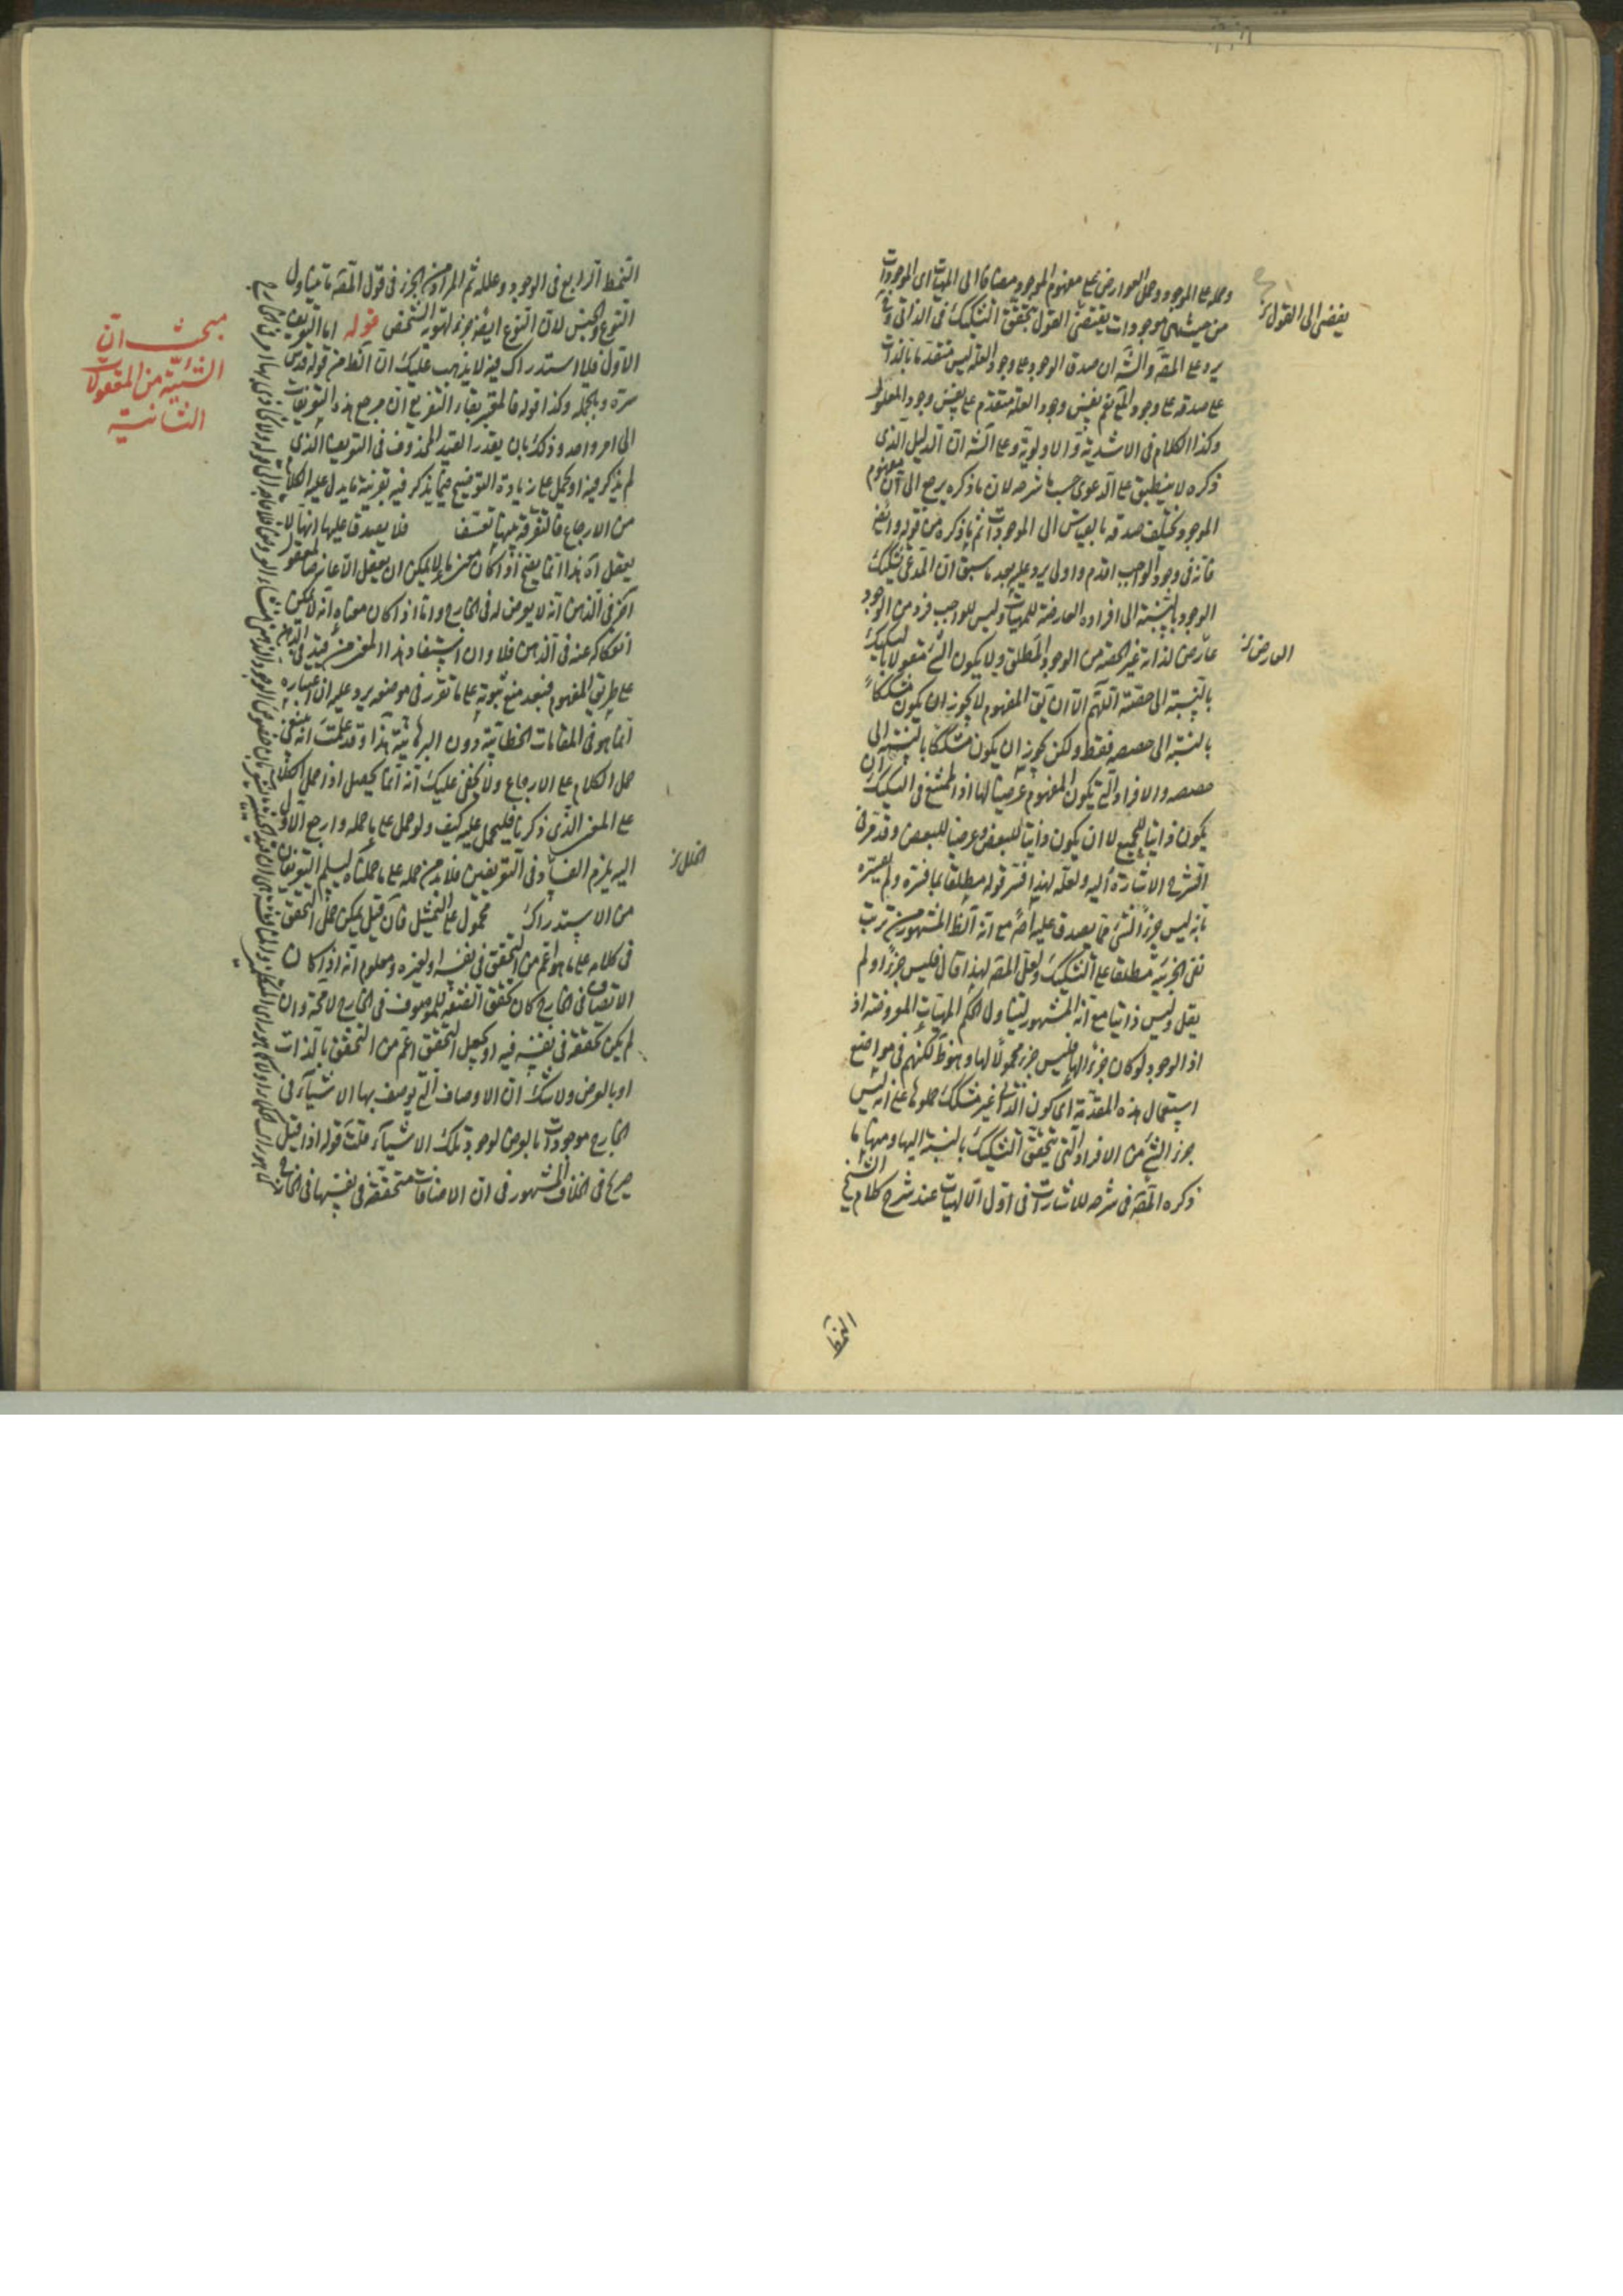 وحمله على الموجود وحمل العوارض على مفهوم الموجود مضافا الى المهيات اى الموجودات
من حيث هى موجودات يقتضى القول بتحقق التشكيك فى الذاتى
يفضى الى القول
يرد على المقه والشه ان صدق الوجود على وجود العلة ليس متقدما بالذات
على صدقه على وجود المع نعم نفس وجود العلة متقدم على نفس وجود المعلول
وكذا الكلام فى الاشدية والاولوية وعلى الشه ان الدليل الذى
ذكره لا ينطبق على الدعوى حسب ما شرحه لان ما ذكره يرجع الى ان مفهوم
الموجود يختلف صدقه بالقياس الى الموجودات ثم ما ذكره من قوله
فانه فى وجود الواجب اقدم واولى يرد عليه بعد ما سبق ان المدعى تشكيك
الوجود بالنسبة الى افراده العارضة للمهيات وليس للواجب فرد من الوجود
عارض لذاته غير الحصة من الوجود المطلق ولا يكون الشئ مقولا بالتشكيك
العارض
بالنسبة الى حصته اللهم الا ان يق المفهوم لا يجوز ان يكون مشككا
بالنسبة الى حصصه فقط ولكن يجوز ان يكون مشككا بالنسبة الى
حصصه والافراد التى يكون المفهوم عرضيا لها اذ الممتنع فى التشكيك ان
يكون ذاتيا للجميع لا ان يكون ذاتيا للبعض وعرضيا للبعض وقد مر فى
الشرح الاشارة اليه ولعله لهذا فسر قوله مطلقا بما فسره ولم يفسره
بانه ليس جزءا لشئ مما يصدق عليه اصلا مع انه الظ المشهور من ترتب
نفى الجزئية مطلقا على التشكيك ولعل المقه لهذا قال فليس جزءا ولم
يقل وليس ذاتيا مع انه المشهور ليتناول الحكم المهيات المعروضة اذ
اذ الوجود لو كان جزءا لها فليس جزءا محمولا لها وهو ظ لكنهم فى مواضع
استعمال هذه المقدمة اى كون الذاتى غير مشكك حملوها على انه ليس
جزء الشئ من الافراد التى يتحقق التشكيك بالنسبة اليها ومنها ما
ذكره المقه فى شرحه للاشارات فى اول الالهيات عند شرح كلام الشيخ
النمط
النمط الرابع فى الوجود وعلله ثم المراد من الجزء فى قول المقه ما يتناول
النوع والجنس لان النوع ايضا جزء لهوية الشخص قوله اما التعريف
مبحث ان
الشيئية من المعقولات
الثانية
الاول فلا استدراك فيه لا يذهب عليك ان الظ من قوله قدس
سره وبالجملة وكذا قوله فالمقرر بفاء التفريع ان مرجع هذه التعريفات
الى امر واحد وذلك بان يقدر القيد المحذوف فى التعريف الذى
لم يذكر فيه او يحمل على زيادة التوضيح فيما يذكر فيه بقرينة ما يدل عليه الكلام
من الارجاع فالتفرقة بينها تعسف فلا يصدق عليها انها لا
يعقل اه هذا انما يصح اذا كان معنى ما لا يمكن ان يعقل الا عارضا لمعقول
آخر فى الذهن انه لا يعرض له فى الخارج واما اذا كان معناه انه لا يمكن
انفكاكه عنه فى الذهن فلا وان استفاد هذا المعنى من قيد فى الذهن
على طريق المفهوم فبعد منع ثبوته على ما تقرر فى موضعه يرد عليه ان اعتباره
انما هو فى المقامات الخطابية دون البرهانية هذا وقد علمت انه ينبغى
حمل الكلام على الارجاع ولا يخفى عليك انه انما يحصل اذا حمل الكلام
على المعنى الذى ذكرنا فليحمل عليه كيف ولو حمل على ما حمله وارجع الاول
اليه يلزم الفساد فى التعريفين فلا بد من حمله على ما حملناه ليسلم التعريفان
الخلل
من الاستدراك محمول على التمثيل فان قيل يمكن حمل التحقق
فى كلامه على ما هو اعم من التحقق فى نفسه او لغيره ومعلوم انه اذا كان
الاتصاف فى الخارج كان تحقق الصفة للموصوف فى الخارج لا محة وان
لم يكن تحققه فى نفسه فيه او يجعل التحقق اعم من التحقق بالذات
او بالعرض ولا شك ان الاوصاف التى يوصف بها الاشياء فى
الخارج موجودات بالعرض لوجود تلك الاشياء قلت قوله اذا قيل
صريح فى الخلاف المشهور فى ان الاضافات متحققة فى نفسها فى الخارج